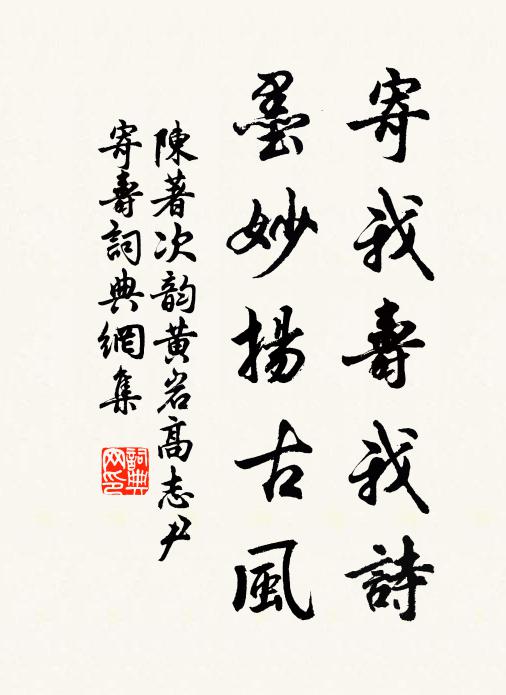 寄我壽我詩
墨妙揚古風
陳著次韵黄岩高志尹
寄壽詞典網集
詞典网印